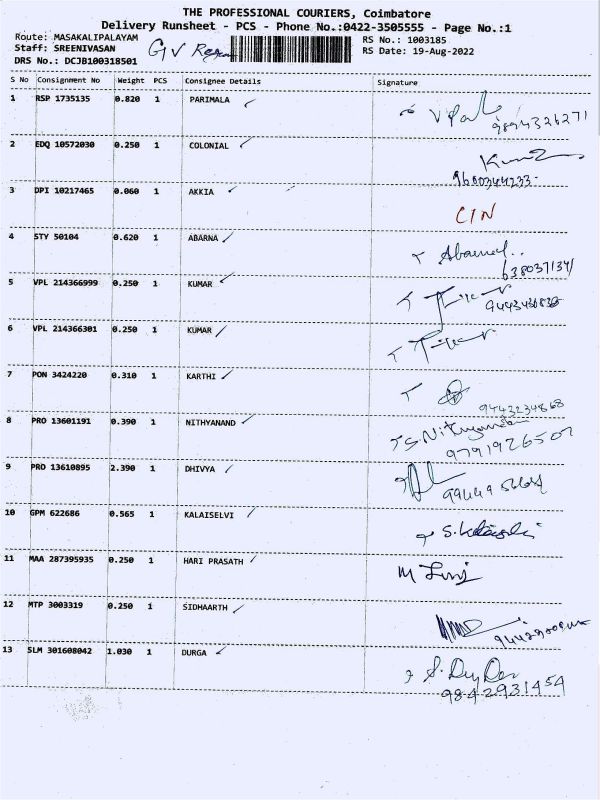 THE PROFESSIONAL COURIERS, Coimbatore
Delivery Runsheet - PCS - Phone No.:0422-3505555 - Page No.:1
Route: MASAKALIPALAYAM
RS No.: 1003185
Staff: SREENIVASAN
GV
RS Date: 19-Aug-2022
DRS No.: DCJB100318501
S No Consignment No Weight PCS Consignee Details Signature
1 RSP 1735135 0.820 1 PARIMALA ✓
9894326271
2 EDQ 10572030 0.250 1 COLONIAL ✓
9600344233-
3 DPI 10217465 0.060 1 AKKIA ✓
CIN
4 STY 50104 0.620 1 ABARNA ✓
6380371341
5 VPL 214366999 0.250 1 KUMAR ✓
6 VPL 214366301 0.250 1 KUMAR ✓
7 PON 3424220 0.310 1 KARTHI ✓
9443234868
8 PRO 13601191 0.390 1 NITHYANAND ✓
9791926507
9 PRO 13610895 2.390 1 DHIVYA ✓
10 GPM 622686 0.565 1 KALAISELVI ✓
11 MAA 287395935 0.250 1 HARI PRASATH ✓
12 MTP 3003319 0.250 1 SIDHAARTH ✓
13 SLM 301608042 1.030 1 DURGA ✓
9842931454